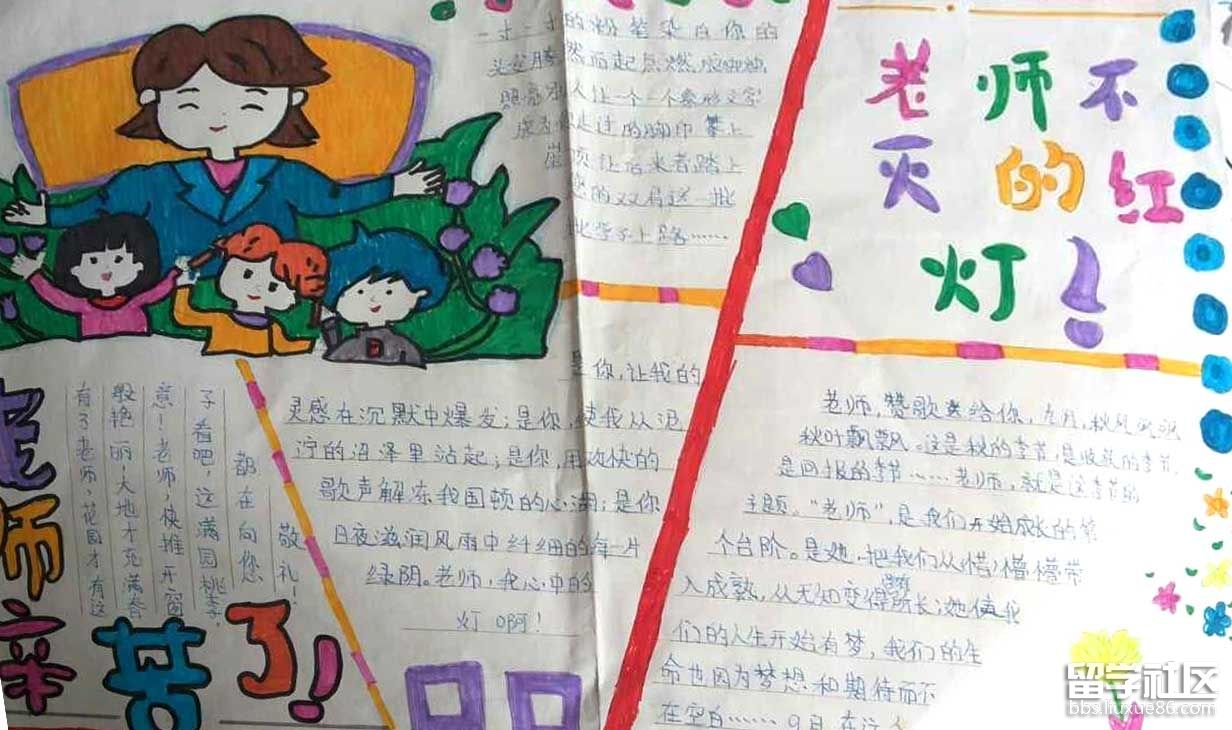 一寸一寸的粉笔染白你的
然而起点燃
照亮 人让一个一个象形文字
走过的脚印 攀上
顶让后来者踏上
的双肩送一批
学子上路……
老师不
灭的红
灯!
是你,让我的
灵感在沉默中爆发;是你,使我从泥
泞的沼泽里站起;是你,用欢快的
歌声解冻我困顿的心湖;是你
日夜滋润风雨中纤细的每一片
绿阴。老师,我心中的
灯啊!
有了老师,花园才有这
般艳丽,大地才充满春
意!老师,快推开窗
子看吧,这满园桃李,
都在向您
敬礼!
老师辛苦了!
老师,赞歌 给你,九月,秋风
秋叶飘飘。这是秋的季节,是收获的季节,
是回报的季节……老师,就是这季节的
主题。“老师”,是我们开始成长的第
个台阶。是她,把我们从懵懵懂懂带
入成熟,从无知变得 所长;她使我
们的人生开始有梦,我们的生
命也因为梦想和期待而不
在空白……9月,在这个
留学社区
bbs.liuxue86.com